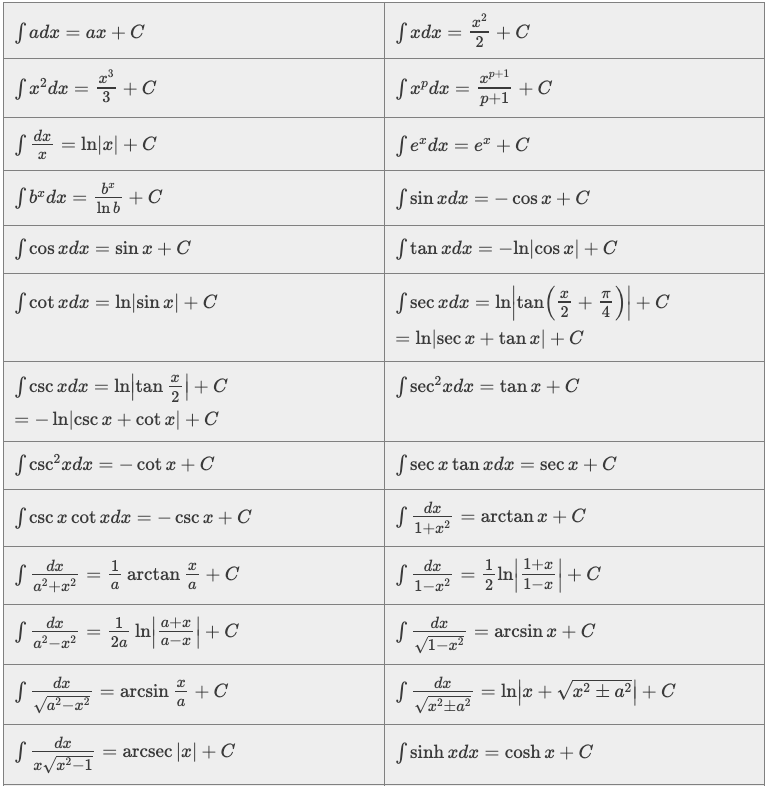 ∫ adx = ax + C
∫ xdx = x²/2 + C
∫ x²dx = x³/3 + C
∫ xᵖdx = xᵖ⁺¹/(p+1) + C
∫ dx/x = ln|x| + C
∫ eˣdx = eˣ + C
∫ bˣdx = bˣ/ln b + C
∫ sin xdx = − cos x + C
∫ cos xdx = sin x + C
∫ tan xdx = −ln|cos x| + C
∫ cot xdx = ln|sin x| + C
∫ sec xdx = ln|tan(x/2 + π/4)| + C
= ln|sec x + tan x| + C
∫ csc xdx = ln|tan x/2| + C
= − ln|csc x + cot x| + C
∫ sec²xdx = tan x + C
∫ csc²xdx = − cot x + C
∫ sec x tan xdx = sec x + C
∫ csc x cot xdx = − csc x + C
∫ dx/(1+x²) = arctan x + C
∫ dx/(a²+x²) = 1/a arctan x/a + C
∫ dx/(1−x²) = 1/2 ln|(1+x)/(1−x)| + C
∫ dx/(a²−x²) = 1/(2a) ln|(a+x)/(a−x)| + C
∫ dx/√(1−x²) = arcsin x + C
∫ dx/√(a²−x²) = arcsin x/a + C
∫ dx/√(x²±a²) = ln|x + √(x² ± a²)| + C
∫ dx/(x√(x²−1)) = arcsec |x| + C
∫ sinh xdx = cosh x + C